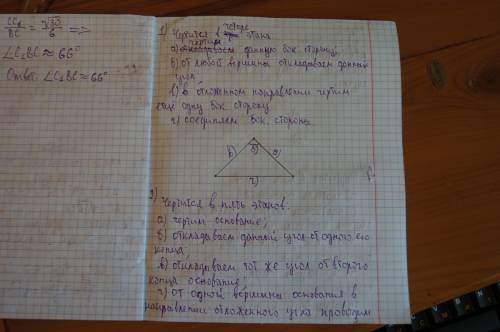 CC₂/BC = √33/6 ⇒
∠C₂BC ≈ 66°
Ответ: ∠C₂BC ≈ 66°
1) Чертится в четыре этапа
а) чертим данную бок. сторону
б) от любой вершины откладываем данный
угол
в) в отложенном направлении чертим
ещё одну бок. сторону
г) соединяем бок. стороны
в)
б)
а)
г)
2)
Чертится в пять этапов:
а) чертим основание;
б) откладываем данный угол от одного его
конца
в) откладываем тот же угол от второго
конца основания
г) от одной вершины основания в
направлении отложенного угла проводим